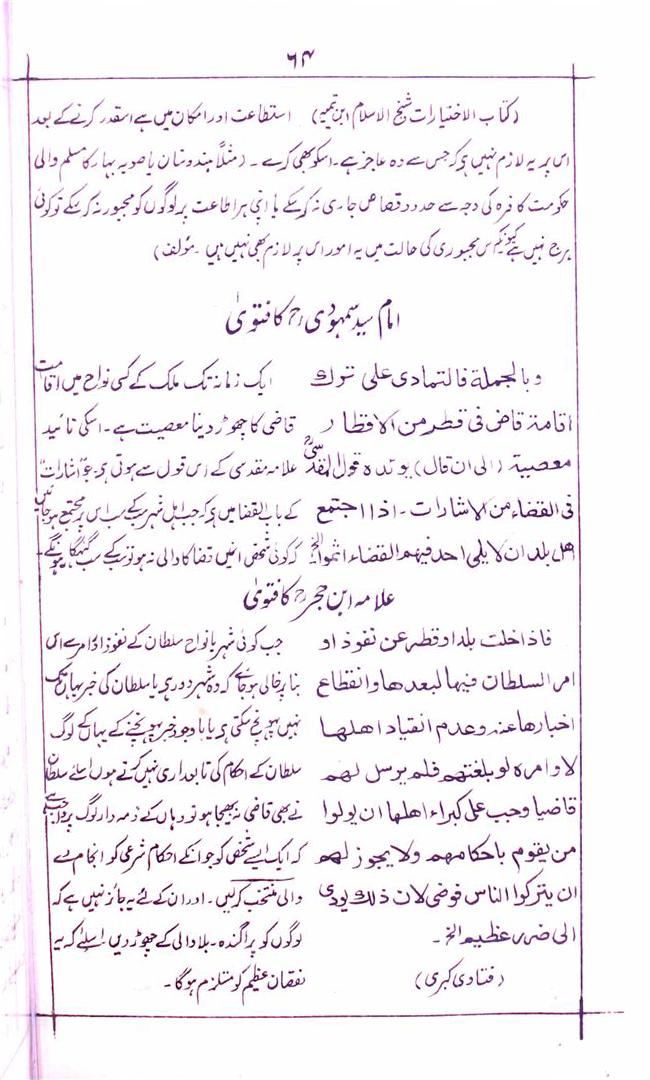 ۶۴
(کتاب الاختیارات شیخ الاسلام ابن تیمیہ) استطاعت اور امکان میں ہے اسقدر کرنے کے بعد
اس پر یہ لازم نہیں ہو کہ جس سے وہ عاجز ہے۔ اسکو بھی کرے ۔ (مثلاً ہندوستان یا صوبہ بہار کا مسلم والی
حکومت کافرہ کی وجہ سے حدود قصاص جاری نہ کرسکے یا اپنی ہر اطاعت پر لوگوں کو مجبور نہ کرسکے تو کوئی
ہرج نہیں ہے کیونکہ اس مجبوری کی حالت میں یہ امور اس پر لازم بھی نہیں ہیں ۔ مؤلف)
امام سید سمہودی رح کا فتویٰ
وبالجملة فالتمادی علی ترک
اقامة قاض فی قطر من الاقطار
معصیة (الی ان قال) یوئدہ قول المقدسی رح
فی القضاء من الاشارات ۔ اذا اجتمع
اهل بلد ان لا یلی احد فیهم القضاء اثموا الخ
ایک زمانہ تک ملک کے کسی نواح میں اقامت
قاضی کا چھوڑ دینا معصیت ہے ۔ اسکی تائید
علامہ مقدسی کے اس قول سے ہوتی ہو جو اشارات
کے باب القضا میں ہو کہ جب اہل شہر سبکے سب اس پر مجتمع ہوجائیں
کہ کوئی شخص انمیں قضا کا والی نہ ہو تو سبکے سب گنہگار ہونگے
علامہ ابن حجر رح کا فتویٰ
فاذا خلت بلد او قطر عن نفوذ او
امر السلطان فیها لبعدها وانقطاع
اخبارها عنه وعدم انقیاد اهلها
لاوامره لو بلغتهم فلم یرسل لهم
قاضیا وجب علی کبراء اهلها ان یولوا
من یقوم باحکامهم ولا یجوز لهم
ان یترکوا الناس فوضی لان ذلک یودی
الی ضرر عظیم الخ ۔
(فتاوی کبری)
جب کوئی شہر یا نواح سلطان کے نفوذ اوامر سے اس
بنا پر خالی ہوجائے کہ وہ شہر دور ہو یا سلطان کی خبر یہاں تک
نہیں پہونچ سکتی ہو یا باوجود خبر پہونچنے کے یہاں کے لوگ
سلطان کے احکام کی تابعداری نہیں کرتے ہوں اسلئے سلطان
نے بھی قاضی نہ بھیجا ہو تو وہاں کے ذمہ دار لوگ پر واجب ہے
کہ ایک ایسے شخص کو جو انکے احکام شرعی کو انجام دے
والی منتخب کرلیں ۔ اور ان کے لئے یہ جائز نہیں ہے کہ
لوگوں کو پراگندہ ۔ بلا والی کے چھوڑ دیں ۔ اسلئے کہ یہ
نقصان عظیم کو مستلزم ہوگا ۔